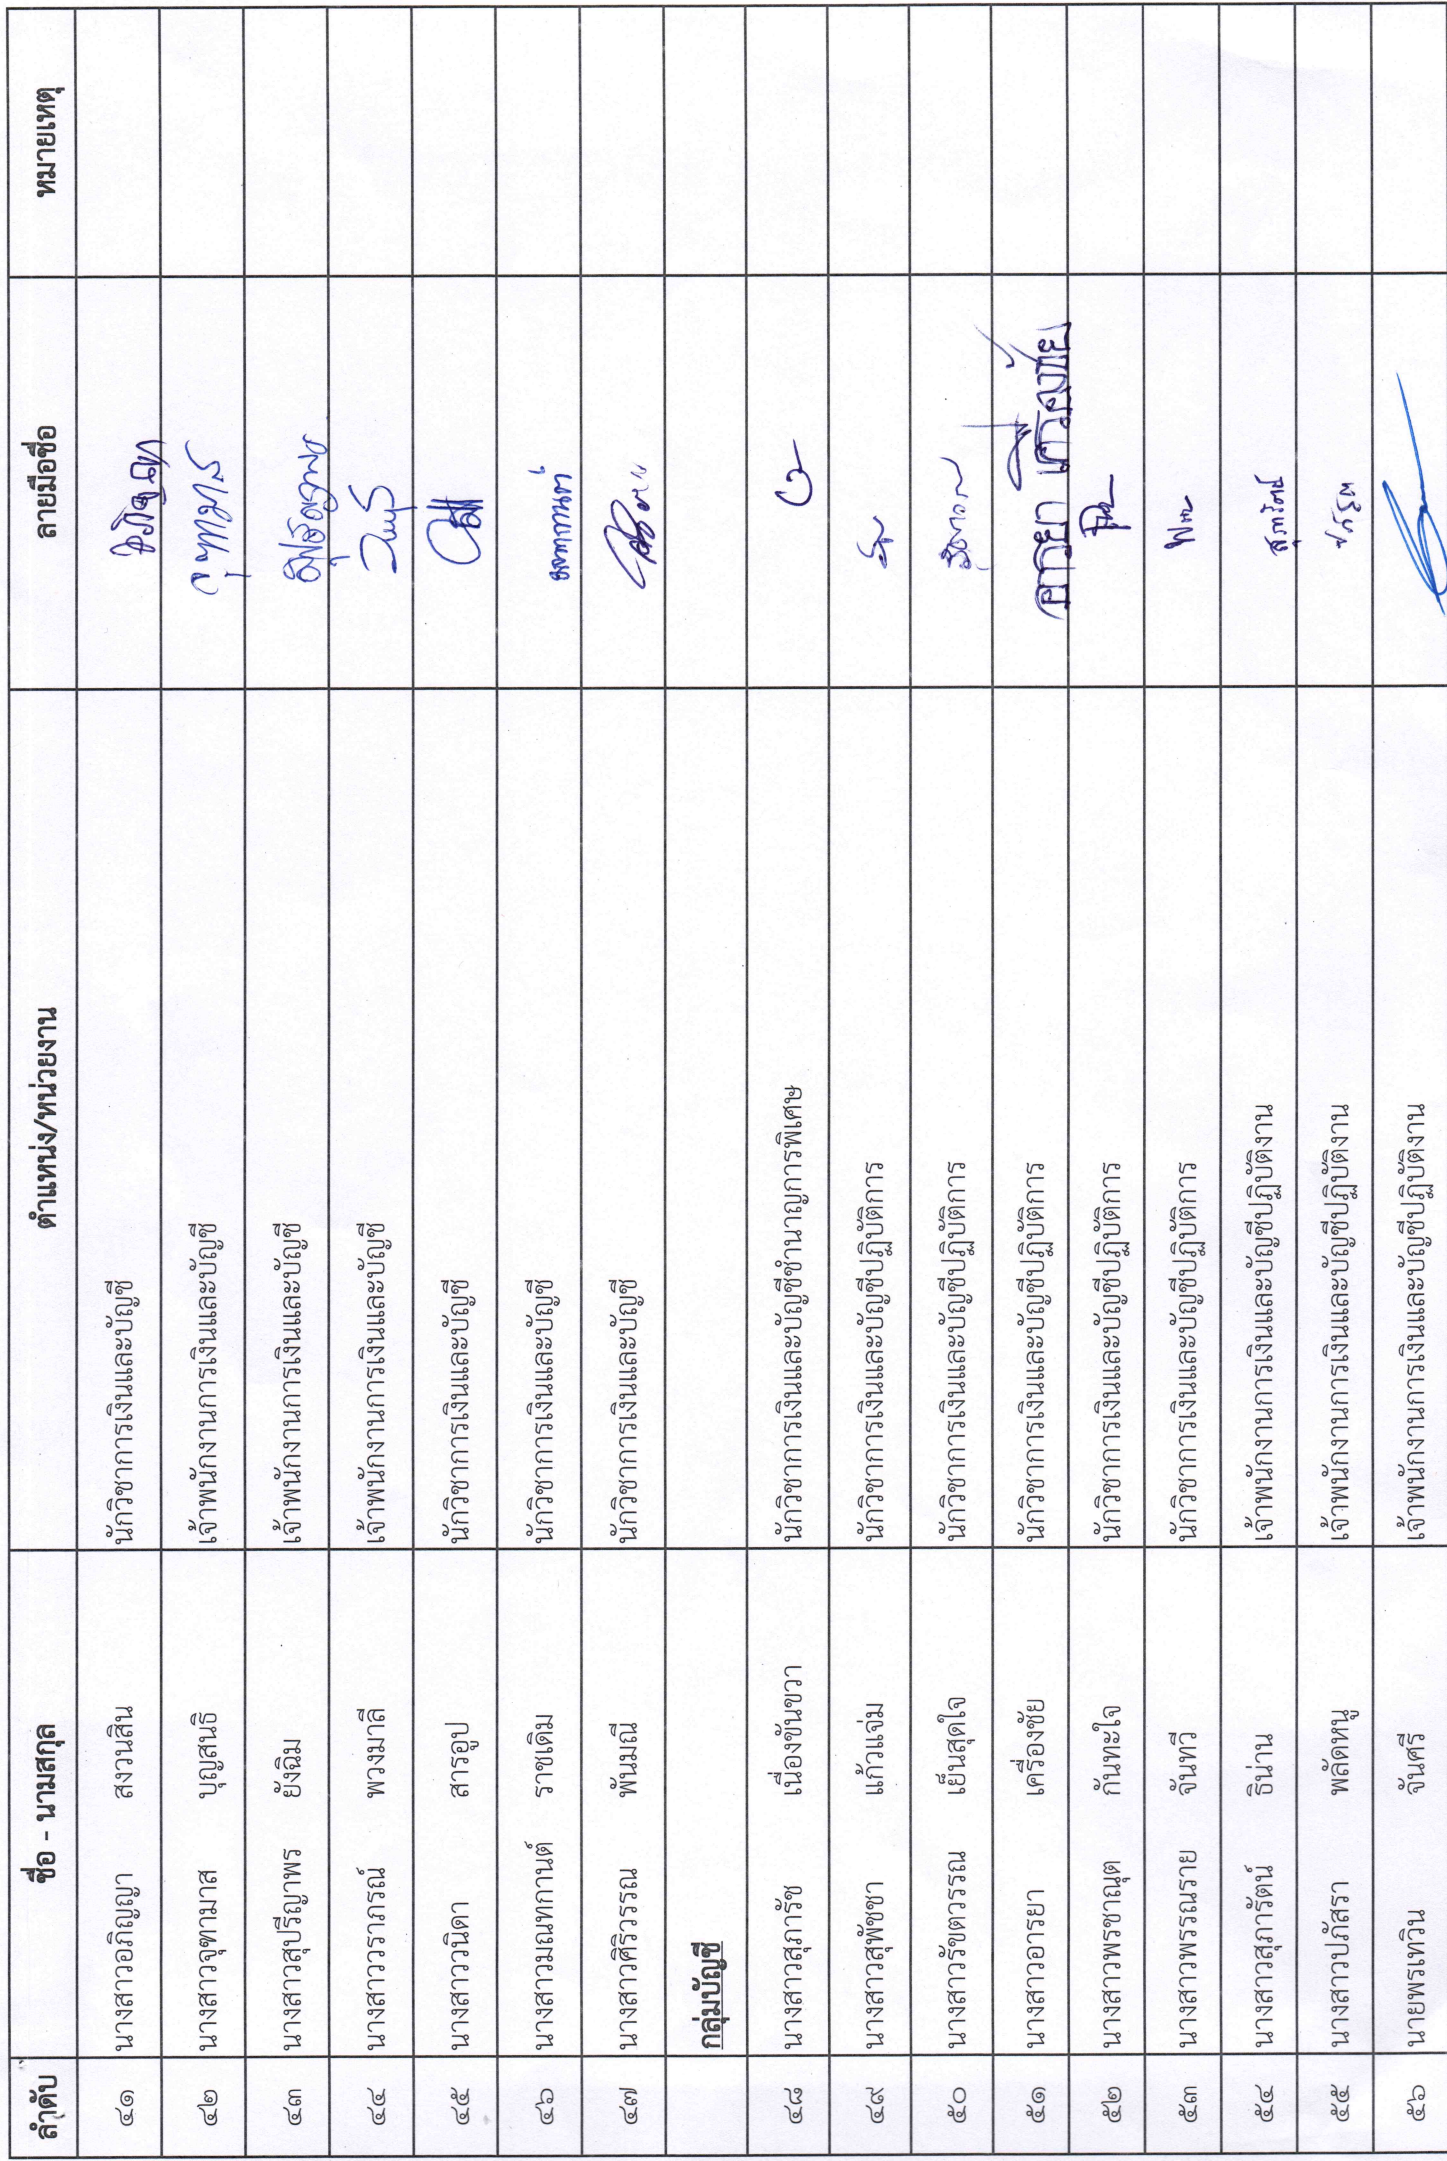 ลำดับ ชื่อ - นามสกุล ตำแหน่ง/หน่วยงาน ลายมือชื่อ หมายเหตุ
๔๑ นางสาวอภิญญา สงวนสิน นักวิชาการเงินและบัญชี
๔๒ นางสาวจุฑามาส บุญสนธิ เจ้าพนักงานการเงินและบัญชี จุฑามาส
๔๓ นางสาวสุปรีญาพร ยังฉิม เจ้าพนักงานการเงินและบัญชี
๔๔ นางสาววราภรณ์ พวงมาลี เจ้าพนักงานการเงินและบัญชี
๔๕ นางสาววนิดา สารอูป นักวิชาการเงินและบัญชี
๔๖ นางสาวมณฑกานต์ ราชเดิม นักวิชาการเงินและบัญชี มณฑกานต์
๔๗ นางสาวศิริวรรณ พันมณี นักวิชาการเงินและบัญชี
กลุ่มบัญชี
๔๘ นางสาวสุภารัช เนื่องขันขวา นักวิชาการเงินและบัญชีชำนาญการพิเศษ
๔๙ นางสาวสุพัชชา แก้วแจ่ม นักวิชาการเงินและบัญชีปฏิบัติการ
๕๐ นางสาวรัชตวรรณ เย็นสุดใจ นักวิชาการเงินและบัญชีปฏิบัติการ
๕๑ นางสาวอารยา เครื่องชัย นักวิชาการเงินและบัญชีปฏิบัติการ อารยา เครื่องชัย
๕๒ นางสาวพรชาณุต กันทะใจ นักวิชาการเงินและบัญชีปฏิบัติการ
๕๓ นางสาวพรรณราย จันทวี นักวิชาการเงินและบัญชีปฏิบัติการ
๕๔ นางสาวสุภารัตน์ ธิน่าน เจ้าพนักงานการเงินและบัญชีปฏิบัติงาน สุภารัตน์
๕๕ นางสาวปภัสรา พลัดหนู เจ้าพนักงานการเงินและบัญชีปฏิบัติงาน
๕๖ นายพรเทวิน จันศรี เจ้าพนักงานการเงินและบัญชีปฏิบัติงาน